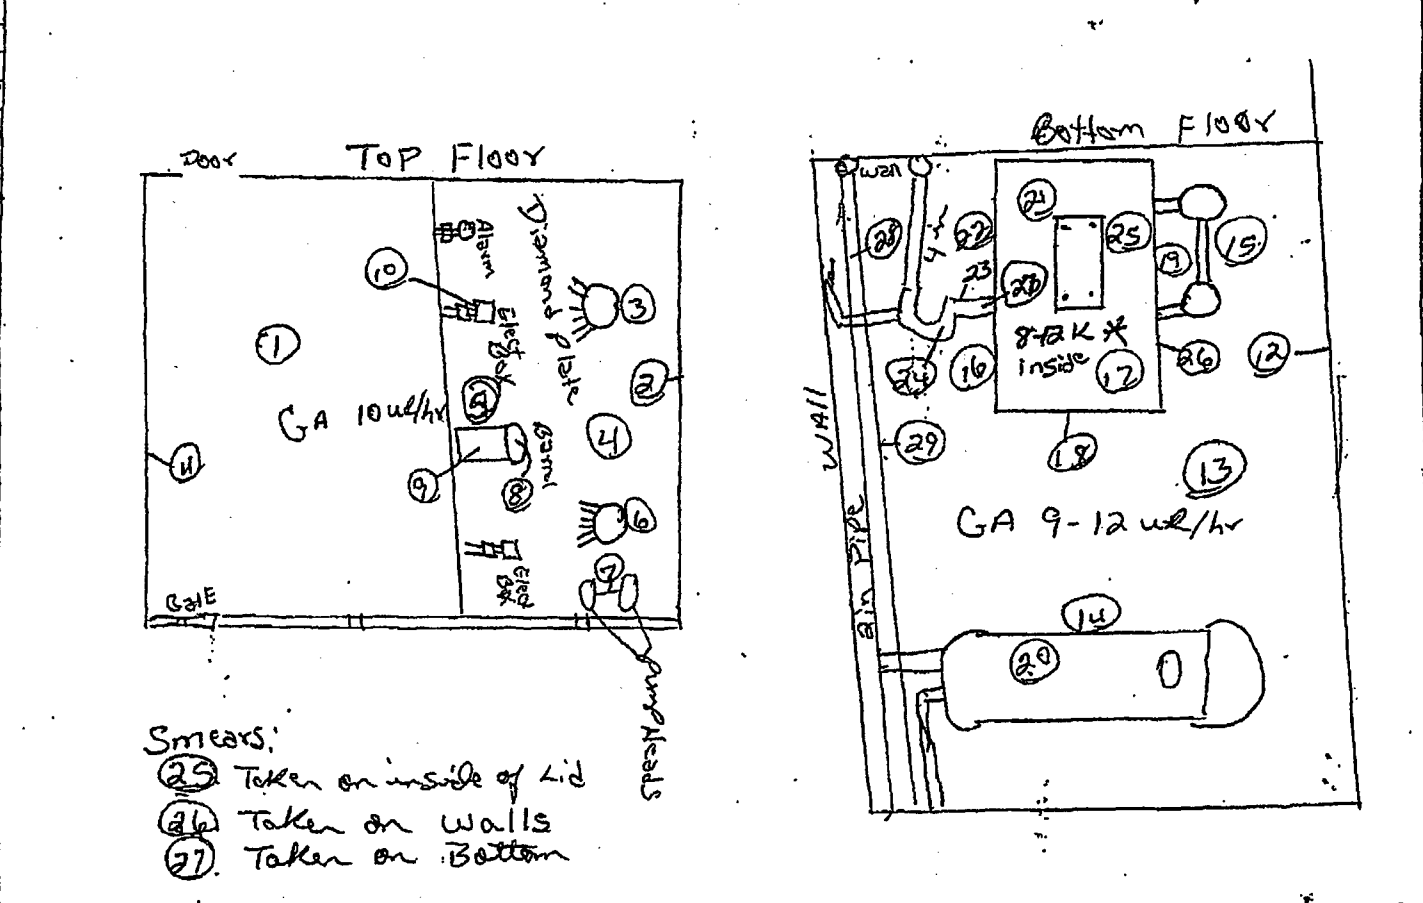 Door
TOP Floor
Alarm
Diamond plate
10
3
Elect Box
1
2
5
GA 10 uR/hr
4
11
Barrel
9
8
6
7
Elect Box
GatE
Pump Heads
Smears:
25 Taken on inside of Lid
26 Taken on walls
27. Taken on Bottom
Bottom Floor
wall
21
28
4 in
22
25
15
19
23
8-12K *
inside
24
16
17
26
12
WAll
29
18
13
GA 9-12 uR/hr
2in Pipe
14
20